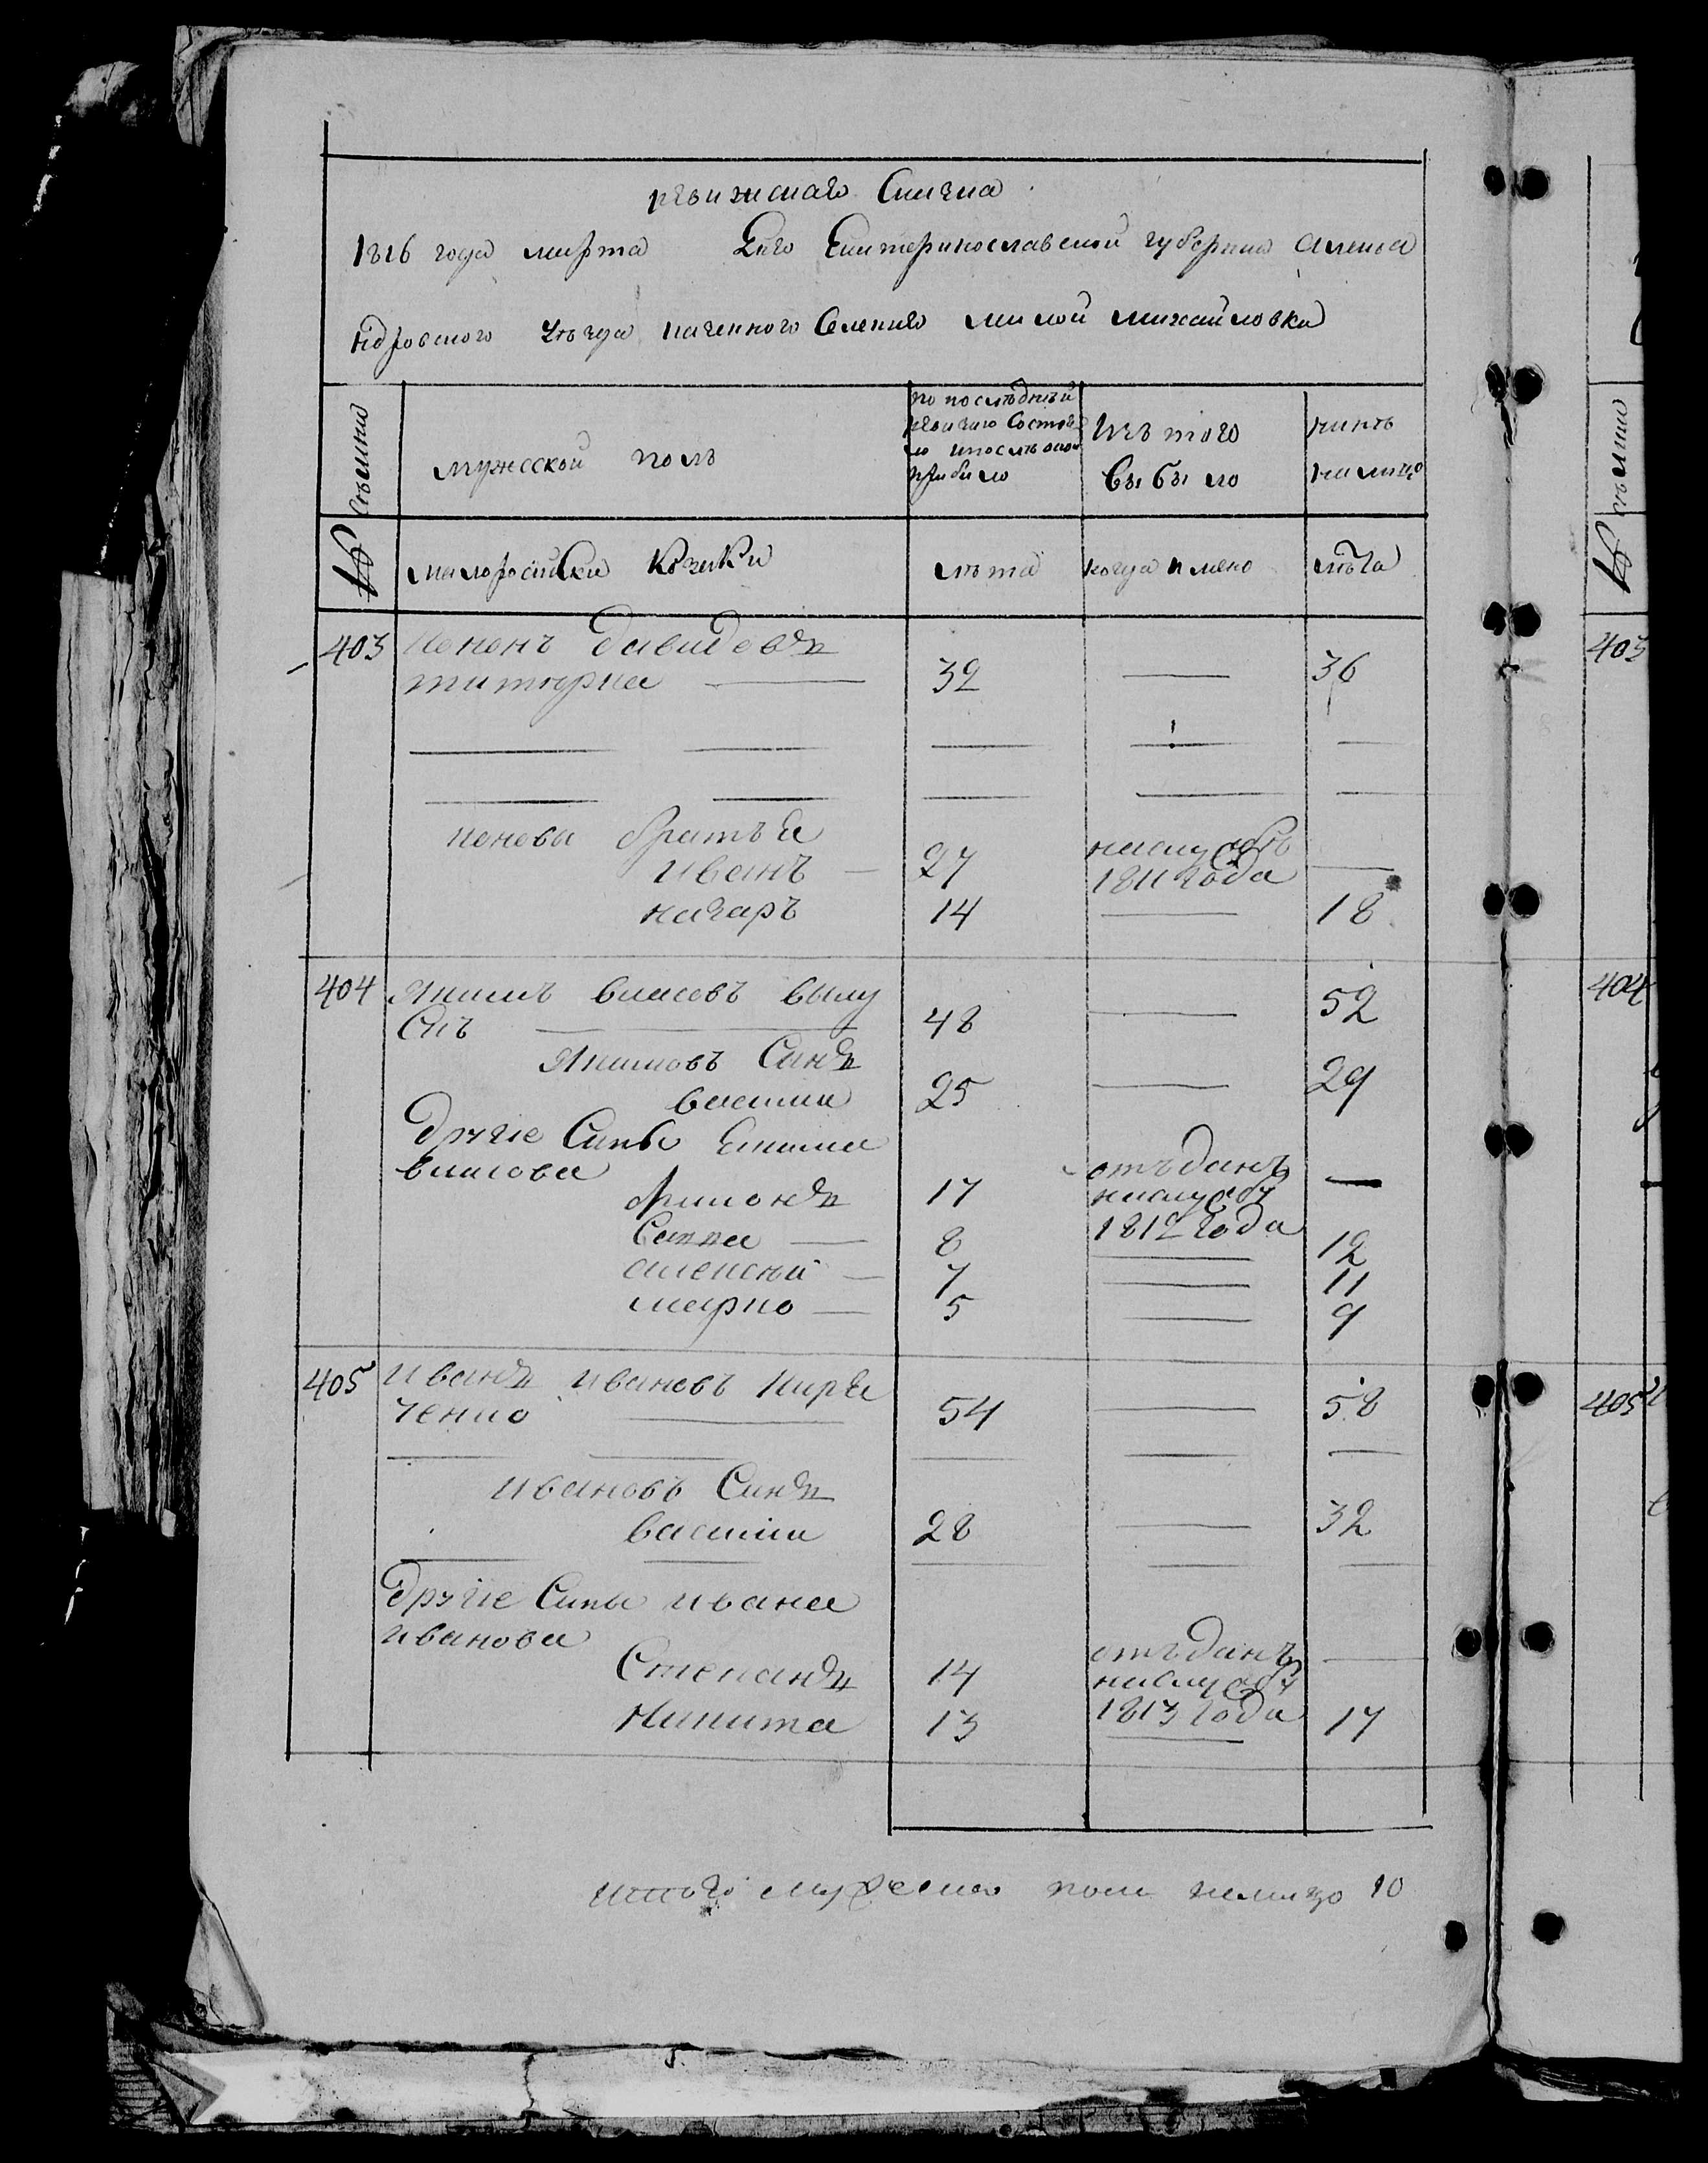 ревижскаго Списка
1816 года марта 2го Екатеринославской губернии Алекса
ндровского уѣзда казенного Селения малой михайловки
Семьи
мужеской полъ
по последней
ревизию Состоя
ло и после оной
прибыло
Изъ того
выбыло
нинѣ
налицо
№
малоросийски Козаки
лѣта
когда имено
лѣта
403 Кононъ давидовъ
титирка 32 36
кононовы братья
Иванъ 27 наслужбѣ
1811 года
назаръ 14 18
404 Якимъ власовъ вылу
Съ 48 52
Якимовъ Синъ
василии 25 29
Другие Сины Екима
власова
филонъ 17 отъданъ
наслужбу
1812 года
Савка 8 12
алексѣй 7 11
марко 5 9
405 Иванъ Ивановъ Киря
ченко 54 58
Ивановъ Синъ
василии 28 32
Другие Сины Ивана
Иванова
Степанъ 14 отъданъ
наслужбу
1813 года
Никита 13 17
итого мужеска пола налицо 10
Семьи
№
403
404
405